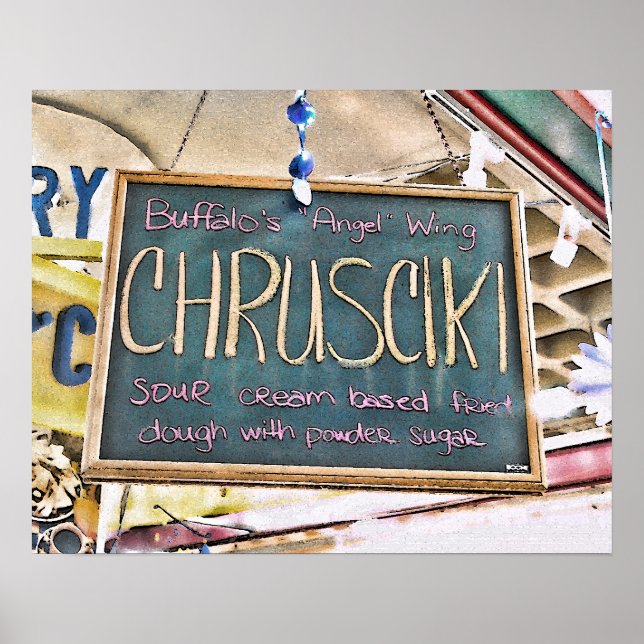 RY
C
Buffalo's "Angel" Wing
CHRUSCIKI
SOUR cream based fried
dough with powder sugar
BOONE